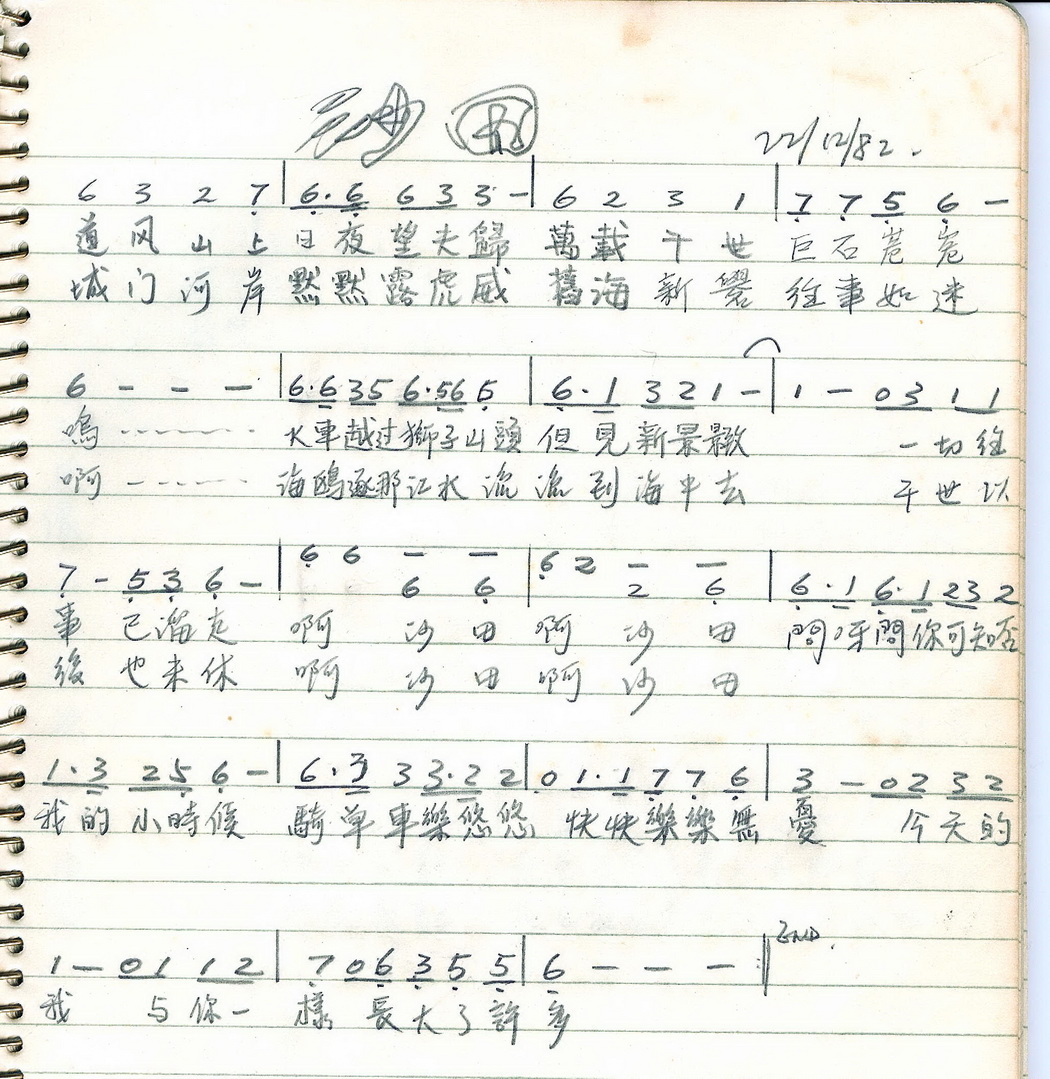 沙田
22/12/82.
6 3 2 7 | 6·6 6 3 3 - | 6 2 3 1 | 7 7 5 6 -
道风山上日夜望夫歸 萬載千世巨石崑崑
城门河岸默默露虎威 舊海新 往事如迷
6 - - - | 6·6 3 5 6·5 6 5 | 6·1 3 2 1 - | 1 - 0 3 1 1
鳴 火車越过獅子山頭 但見新景緻 一切往
啊 海鷗逐那江水流 流到海中去 千世以
7 - 5 3 6 - | 6 6 - - | 6 2 - - | 6·1 6·1 2 3 2
6 6 2 6
事 已溜走 啊 沙田 啊 沙田 問呀問你可知否
後 也未休 啊 沙田 啊 沙田
1·3 2 5 6 - | 6·3 3 3·2 2 | 0 1·1 7 7 6 | 3 - 0 2 3 2
我的小時候 騎单車樂悠悠 快快樂樂無憂 今天的
1 - 0 1 1 2 | 7 0 6 3 5 5 | 6 - - - END.
我 与你一樣 長大了許多